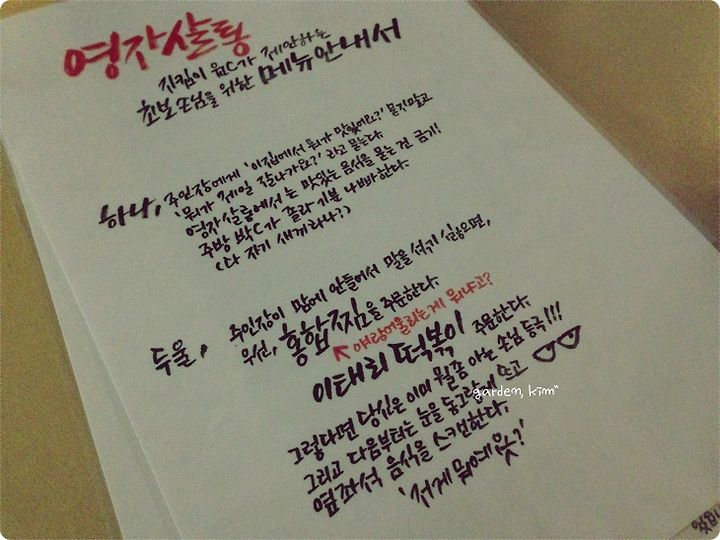 영자살롱
지킴이 윤C가 제안하는
초보손님을 위한 메뉴안내서
하나, 주인장에게 '이집에서 뭐가 맛있어요?' 묻지말고
'뭐가 제일 잘나가요?' 라고 묻는다.
영자살롱에서는 맛있는 음식을 묻는 건 금기!
주방 박C가 졸라 기분 나빠한다.
(다 자기 새끼라나?)
둘, 주인장이 맘에 안들어서 말을 섞기 싫으면,
위선, 홍합찜을 주문한다.
얘랑어울리는게 뭐냐고?
이태리 떡볶이 주문한다.
그렇다면 당신은 이미 뭘좀 아는 손님 등극!!!
그리고 다음부터는 눈을 동그랗게 뜨고
옆좌석 음식을 스캔한다.
'저게 뭠예욧?'
garden, kim"